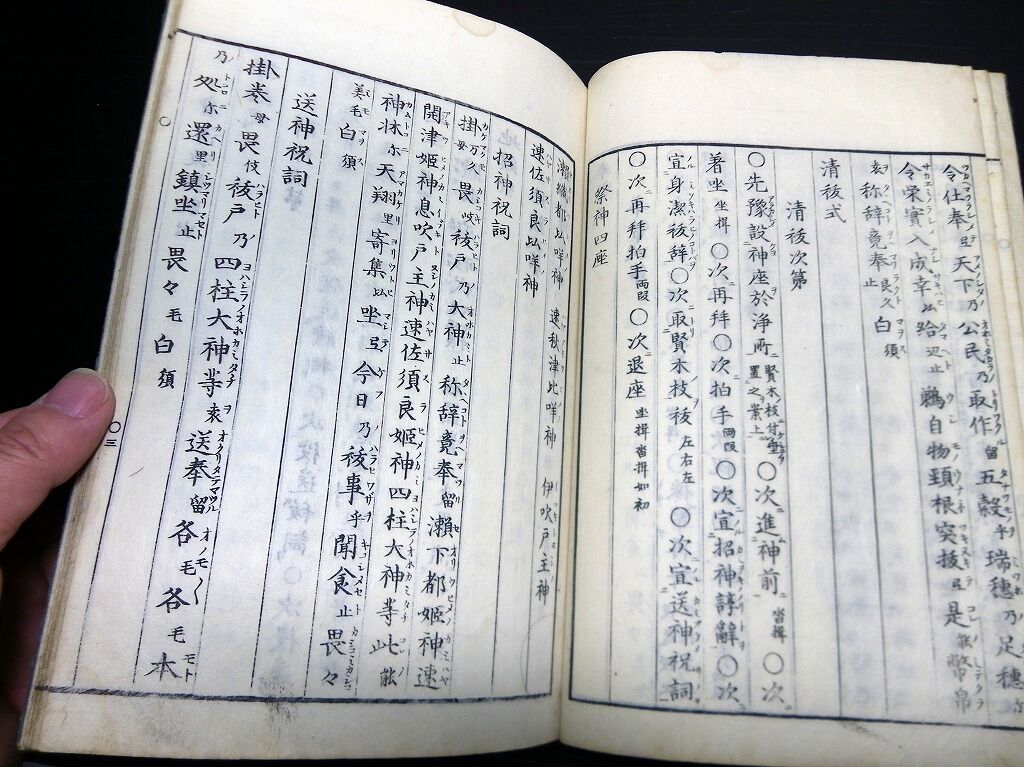 令仕奉弖天下乃公民乃取作留五穀乎瑞穂乃足穂
令栄実入成幸比給辺止鵜自物頸根突抜弖是能幣帛
乎称辞竟奉良久白須
清祓式
清祓次第
○先豫設神座於浄所 賢木枝付 置之案上 ○次進神前 沓揖 ○次
著坐 坐揖 ○次再拜○次拍手 両段 ○次宣招神諄辭○次
宣身潔祓辞○次取賢木枝祓 左右左 ○次宣送神祝詞
○次再拜拍手 両段 ○次退座 坐揖 沓揖如初
祭神四座
瀬織都比咩神 速秋津比咩神 伊吹戸主神
速佐須良比咩神
招神祝詞
掛万久母畏岐祓戸乃大神止称辞竟奉留瀬下都姫神速
開津姫神息吹戸主神速佐須良姫神四柱大神等此能
神牀尓天翔里寄集比坐弖今日乃祓事乎聞食止畏々
美毛白須
送神祝詞
掛巻母畏伎祓戸乃四柱大神等袁送奉留各毛各毛本
乃処尓還里鎮坐止畏々毛白須
○三